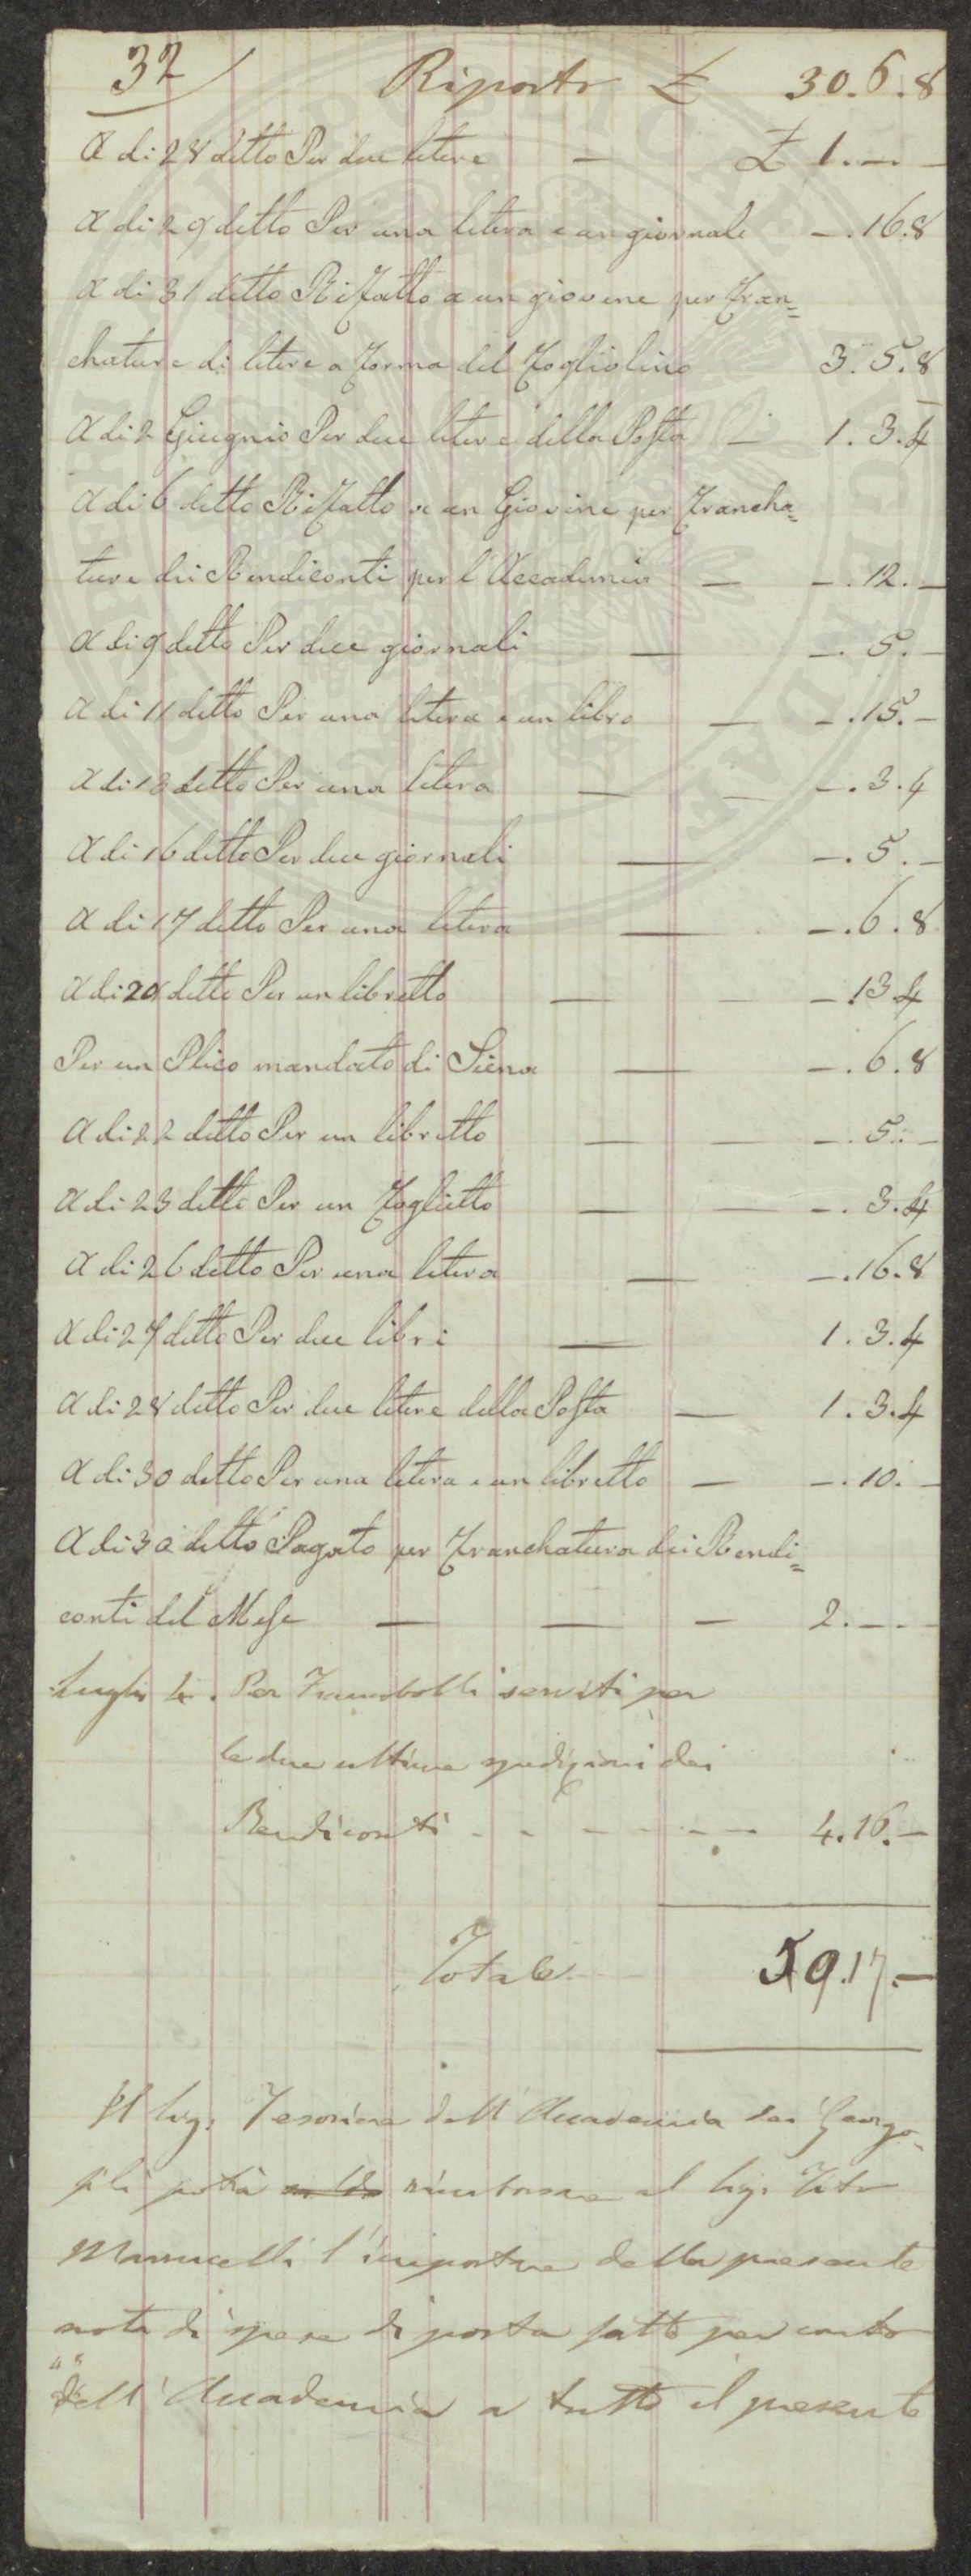 32
Riporto £ 30.6.8
A di 28 detto Per due letere — £ 1.—.—
A di 29 detto Per una letera e un giornale —.16.8
A di 31 detto Rifatto a un giovene per fran=
chature di letere a forma del fogliolino 3.5.8
A di 2 Giugnio Per due letere della Posta — 1.3.4
A di 6 detto Rifatto a un Giovine per francha=
ture dei Rendiconti per l'Accademia — —.12.—
A di 9 detto Per due giornali — —.5.—
A di 11 detto Per una letera e un libro — —.15.—
A di 13 detto Per una letera — — —.3.4
A di 16 detto Per due giornali — —.5.—
A di 17 detto Per una letera — —.6.8
A di 20 detto Per un libretto — — —.13.4
Per un Plico mandato di Siena — —.6.8
A di 22 detto Per un libretto — — —.5.—
A di 23 detto Per un foglietto — — —.3.4
A di 26 detto Per una letera — —.16.8
A di 27 detto Per due libri — 1.3.4
A di 28 detto Per due letere della Posta — 1.3.4
A di 30 detto Per una letera e un libretto — —.10.—
A di 30 detto Pagato per franchatura dei Rendi=
conti del Mese — — — 2.—.—
Luglio 4. Per Francobolli serviti per
le due ultime spedizioni dei
Rendiconti - - - - - - - 4.16.—
Totale 59.17.—
Il Sig. Tesoriere dell'Accademia dei Georgo-
fili potrà rimborsare al Sig. Tito
l'importare della presente
nota di spese di posta fatte per conto
dell'Accademia a tutto il presente